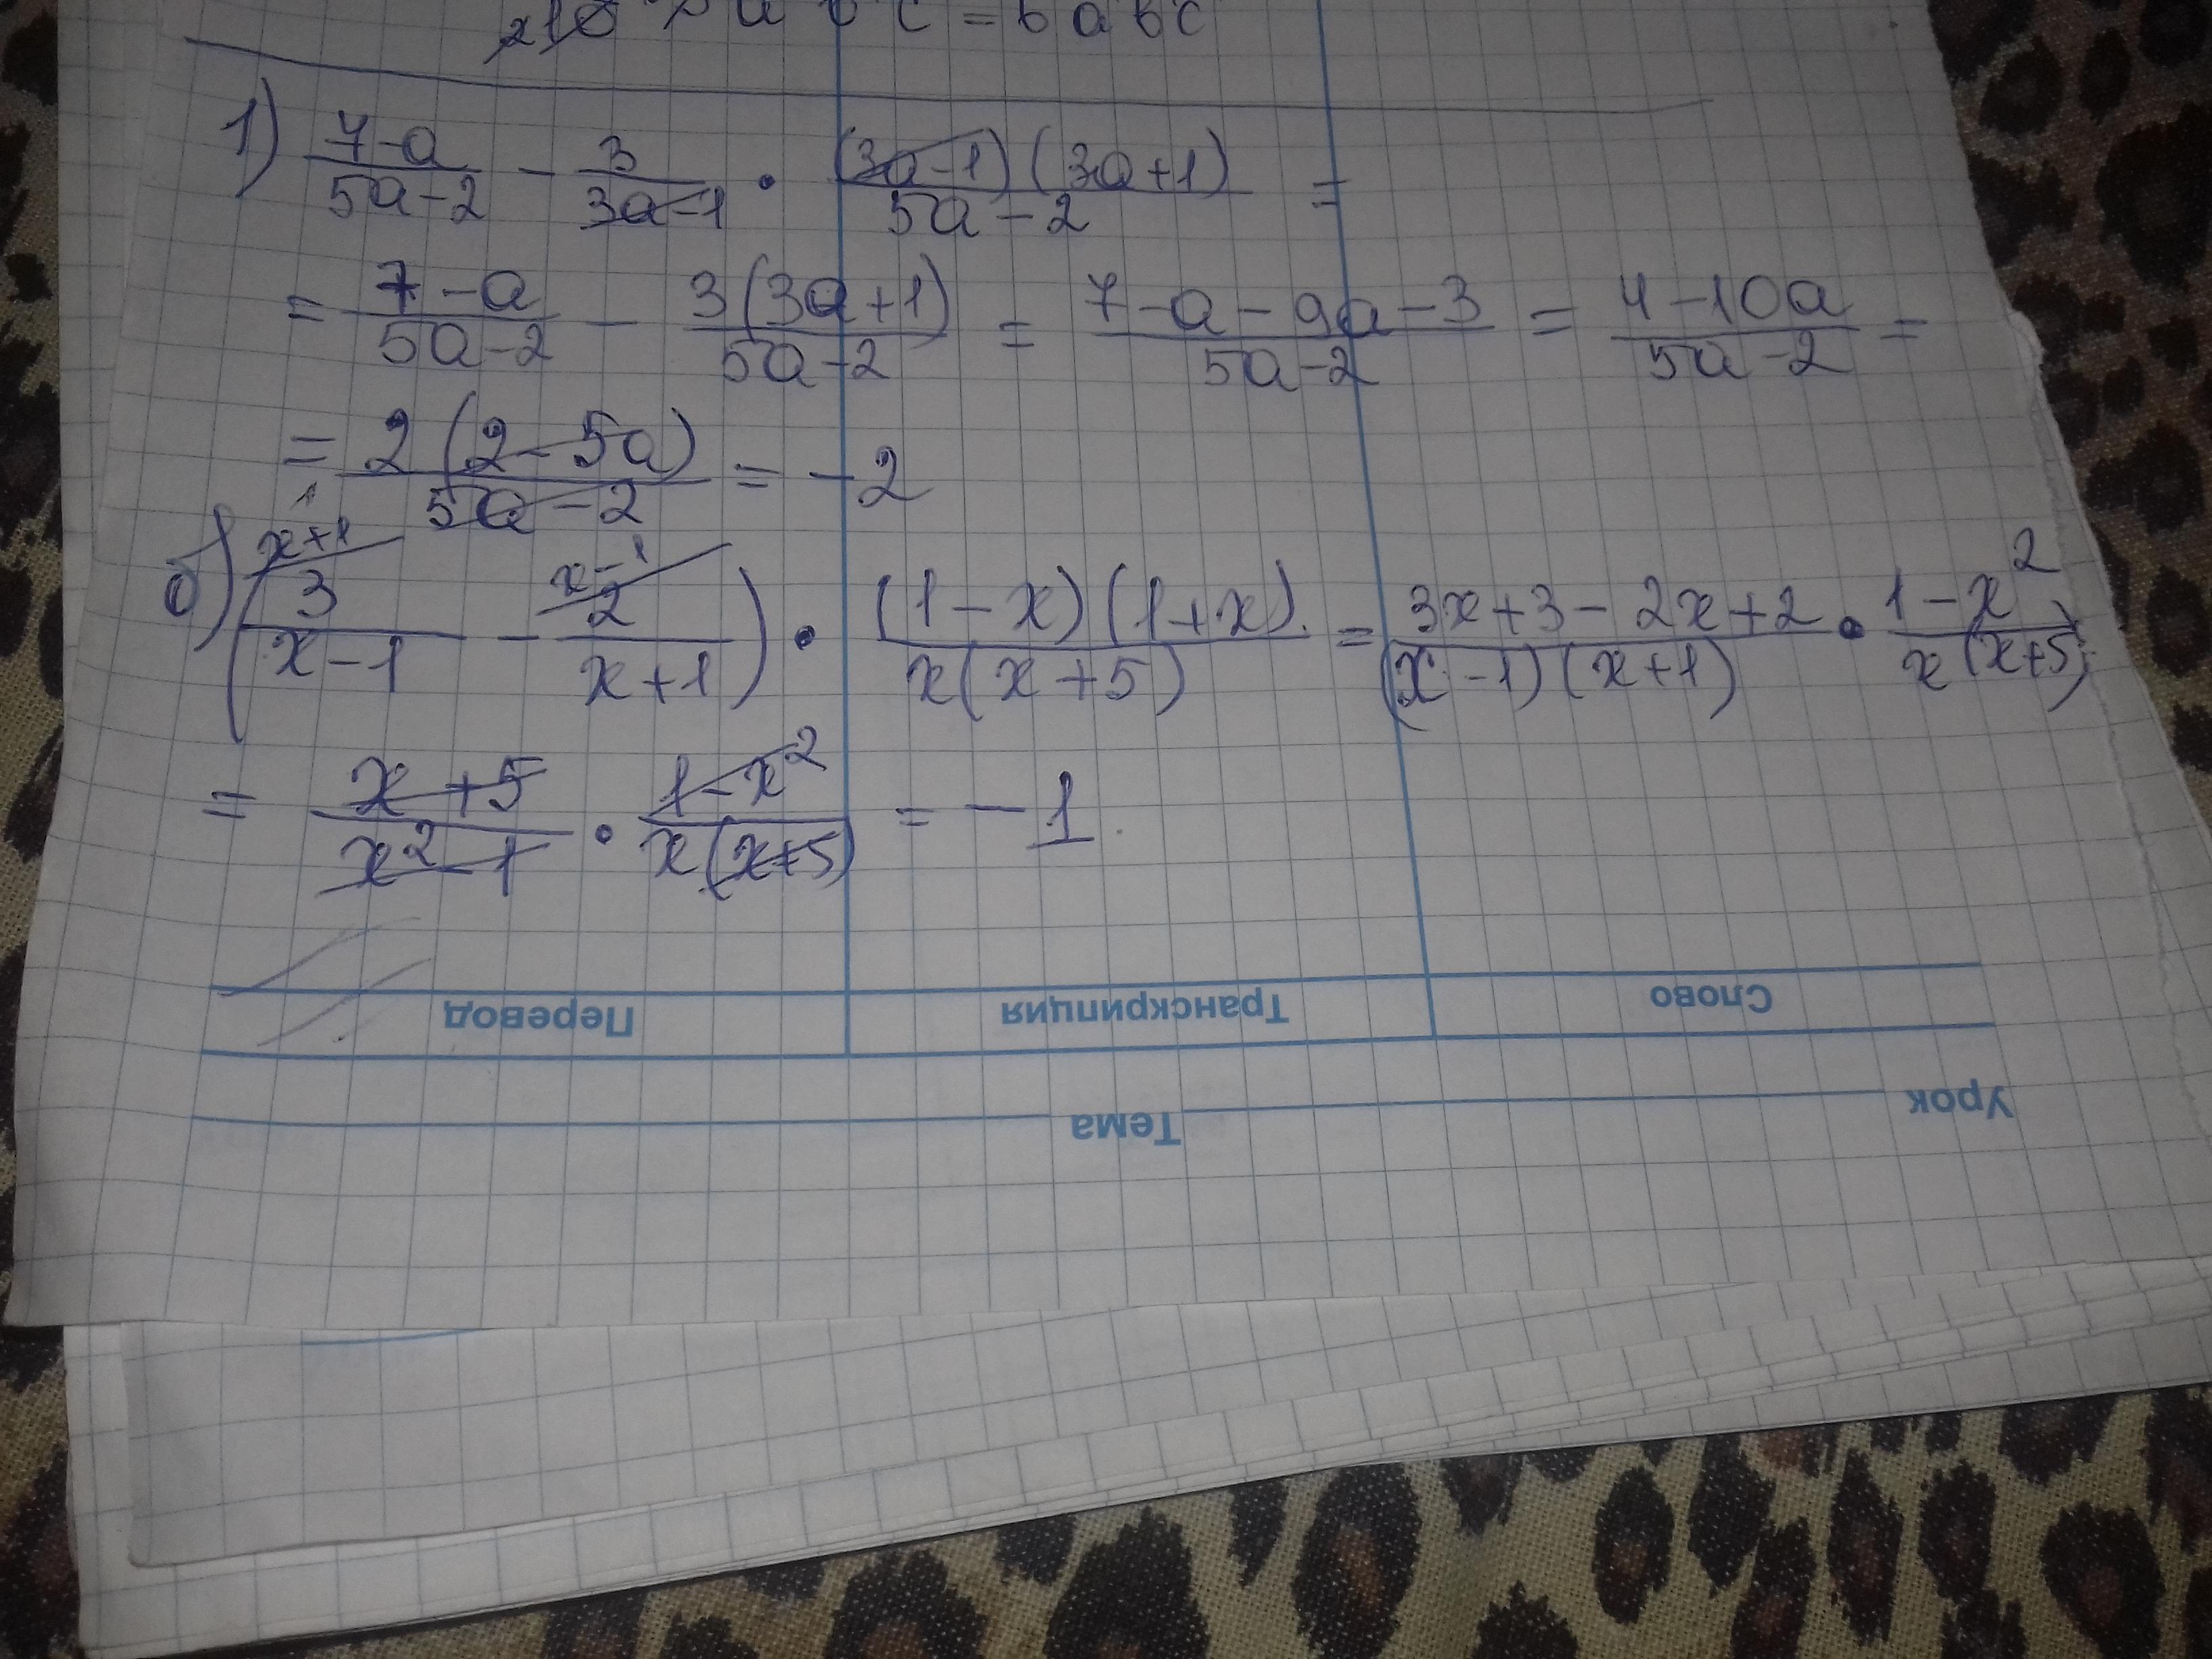 = 6 a b c
1) (7-a)/(5a-2) - 3/(3a-1) · ((3a-1)(3a+1))/(5a-2) =
= (7-a)/(5a-2) - (3(3a+1))/(5a-2) = (7-a-9a-3)/(5a-2) = (4-10a)/(5a-2) =
= (2(2-5a))/(5a-2) = -2
б) (x+1 3/(x-1) - x-1 2/(x+1)) · ((1-x)(1+x))/(x(x+5)) = (3x+3-2x+2)/((x-1)(x+1)) · (1-x²)/(x(x+5))
= (x+5)/(x²-1) · (1-x²)/(x(x+5)) = -1
Слово Транскрипция Перевод
Урок Тема